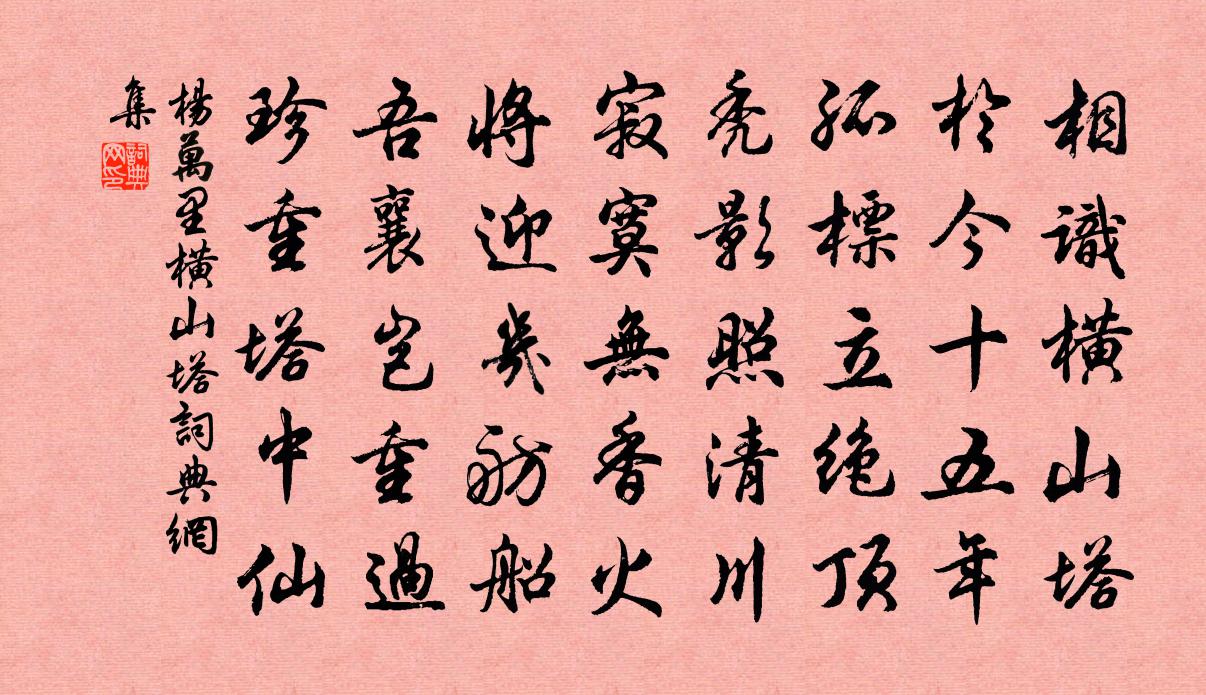 相識橫山塔
於今十五年
孤標立絕頂
禿影照清川
寂寞無香火
將迎幾舫船
吾衰豈重過
珍重塔中仙
楊萬里橫山塔詞典網
集
詞典
网印